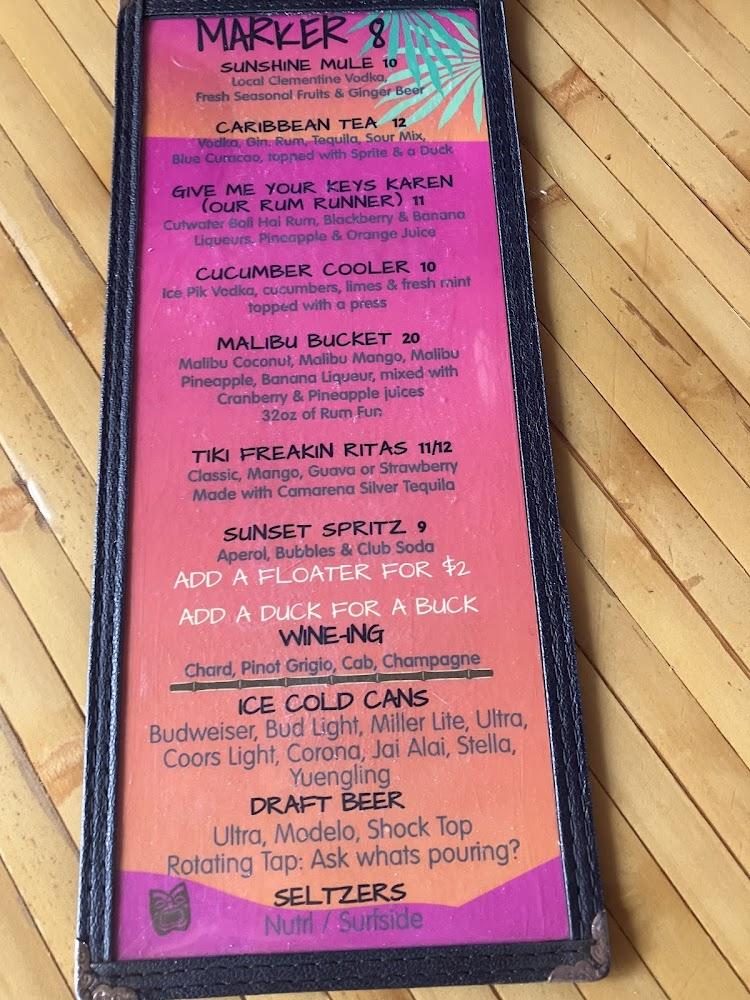 MARKER 8
SUNSHINE MULE 10
Local Clementine Vodka,
Fresh Seasonal Fruits & Ginger Beer
CARIBBEAN TEA 12
Vodka, Gin, Rum, Tequila, Sour Mix,
Blue Curacao, topped with Sprite & a Duck
GIVE ME YOUR KEYS KAREN
(OUR RUM RUNNER) 11
Cutwater Bali Hai Rum, Blackberry & Banana
Liqueurs, Pineapple & Orange Juice
CUCUMBER COOLER 10
Ice Pik Vodka, cucumbers, limes & fresh mint
topped with a press
MALIBU BUCKET 20
Malibu Coconut, Malibu Mango, Malibu
Pineapple, Banana Liqueur, mixed with
Cranberry & Pineapple juices
32oz of Rum Fun
TIKI FREAKIN RITAS 11/12
Classic, Mango, Guava or Strawberry
Made with Camarena Silver Tequila
SUNSET SPRITZ 9
Aperol, Bubbles & Club Soda
ADD A FLOATER FOR $2
ADD A DUCK FOR A BUCK
WINE-ING
Chard, Pinot Grigio, Cab, Champagne
ICE COLD CANS
Budweiser, Bud Light, Miller Lite, Ultra,
Coors Light, Corona, Jai Alai, Stella,
Yuengling
DRAFT BEER
Ultra, Modelo, Shock Top
Rotating Tap: Ask whats pouring?
SELTZERS
Nutrl / Surfside